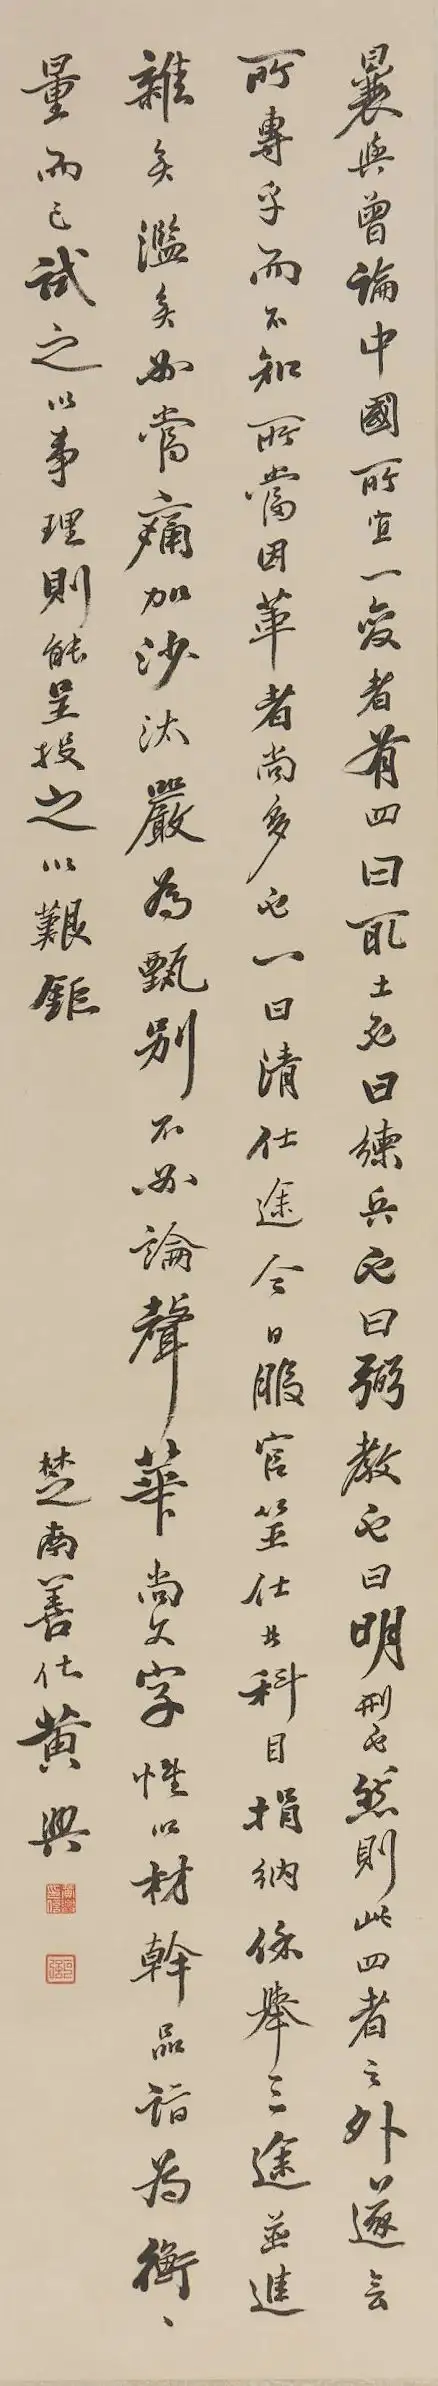 曩與曾論中國所宜一變者有四曰取士也曰練兵也曰弼教也曰明刑也然則此四者之外遂無
所專乎而不知所當因革者尚多也一曰清仕途今日服官筮仕者科目捐納保舉三途並進
雜矣濫矣必當痛加沙汰嚴為甄別不必論聲華尚文字惟以材幹品詣為衡、
量而已試之以事理則能呈投之以艱鉅
楚南善化黃興